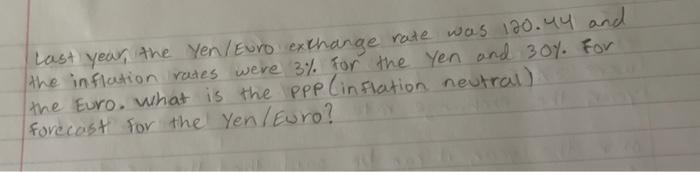 Last year, the Yen/Euro exchange rate was 120.44 and
the inflation rates were 3% for the Yen and 30% for
the Euro. What is the PPP (inflation neutral)
forecast for the Yen/Euro?